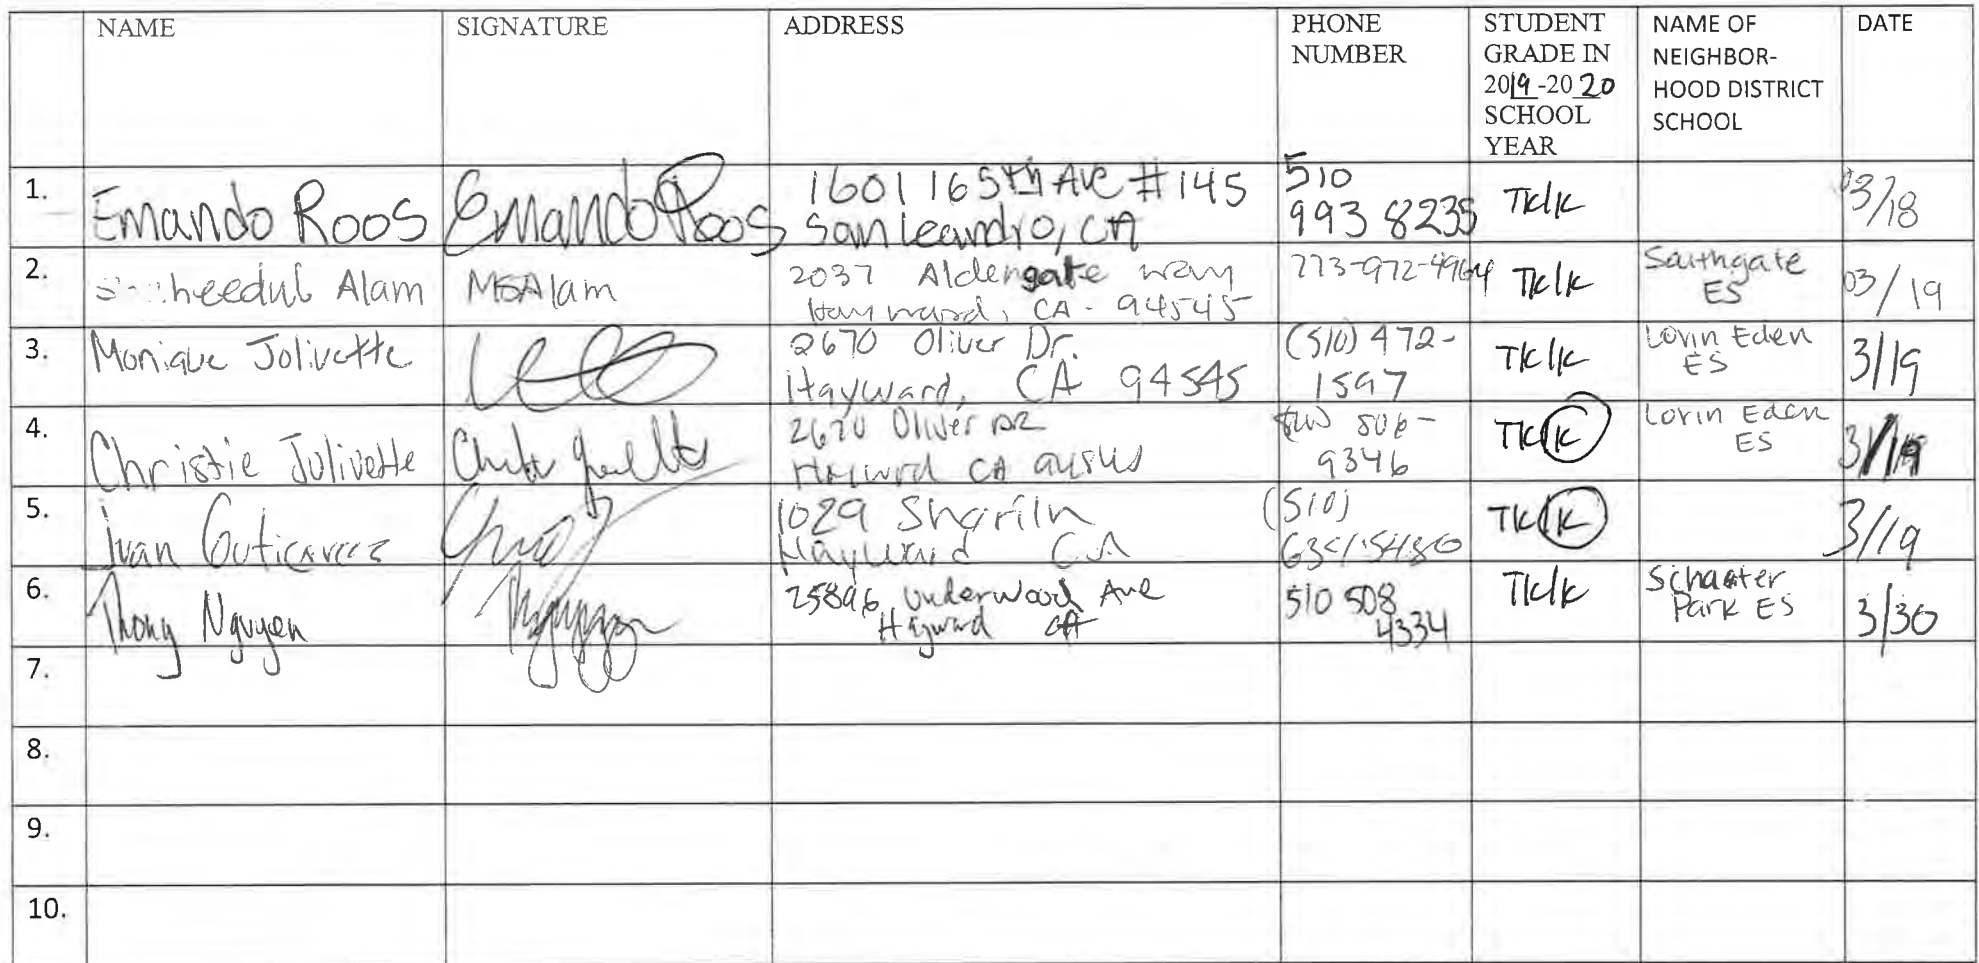 NAME
SIGNATURE
ADDRESS
PHONE
NUMBER
STUDENT
GRADE IN
2019-2020
SCHOOL
YEAR
NAME OF
NEIGHBOR-
HOOD DISTRICT
SCHOOL
DATE
1.
Emando Roos
Emando Roos
1601 165th Ave #145
San Leandro, CA
510
993 8235
TK/K
03/18
2.
Alam
MSAlam
2037 Aldengate way
Hayward, CA - 94545
773-972-4964
TK/K
Southgate
ES
03/19
3.
Monique Jolivette
2670 Oliver Dr.
Hayward, CA 94545
(510) 472-
1597
TK/K
Lorin Eden
ES
3/19
4.
Christie Jolivette
2670 Oliver DR
CA
506-
9346
TK/K
Lorin Eden
ES
3/19
5.
Juan
1029 Shariln
Hayward CA
(510)
TK/K
3/19
6.
Thony Nguyen
25896 Underwood Ave
Hayward CA
510 508
4334
TK/K
Park ES
3/30
7.
8.
9.
10.